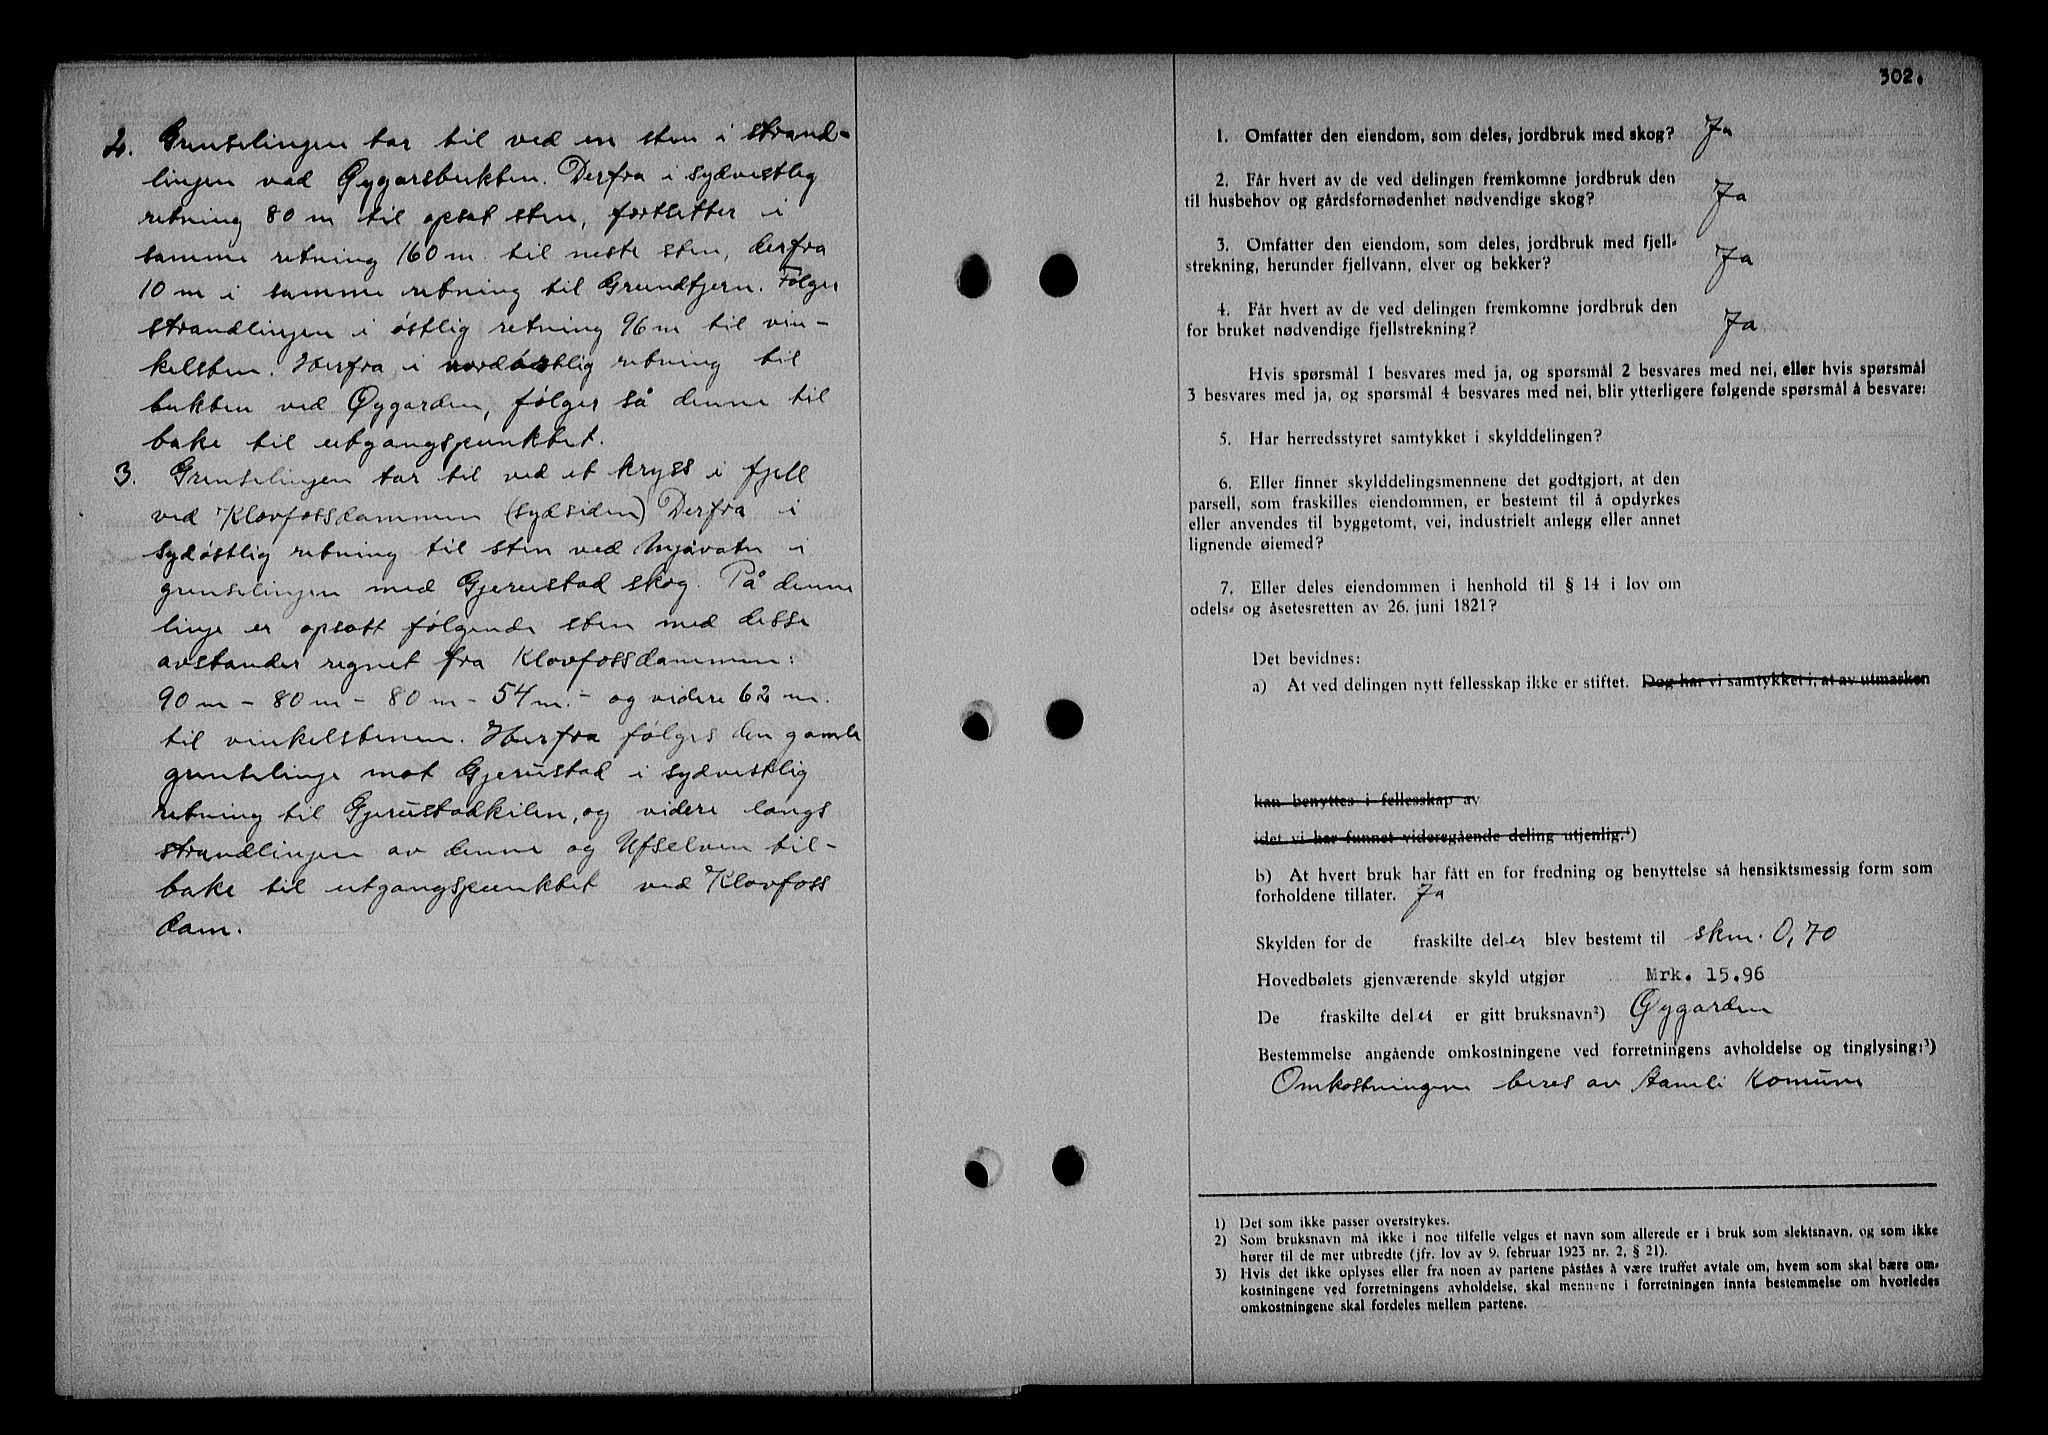 2. Grenselinjen tar til ved en sten i strand-
linjen ved Øygarsbukten. Derfra i sydvestlig
retning 80 m til opsat sten, fortsetter i
samme retning 160 m. til neste sten, derfra
10 m i samme retning til Grundtjern. Følger
strandlinjen i østlig retning 96 m til vin-
kelsten. Herfra i nordøstlig retning til
bukten ved Øygarden, følger så denne til
bake til utgangspunktet.
3. Grenselinjen tar til ved et kryss i fjell
ved Klovfossdammen (sydsiden) Derfra i
sydøstlig retning til sten ved Mjåvatn i
grenselinjen med Gjerustad skog. På denne
linje er opsatt følgende sten med disse
avstander regnet fra Klovfossdammen:
90 m - 80 m - 80 m - 54 m. - og videre 62 m.
til vinkelstenen. Herfra følges den gamle
grenselinje mot Gjerustad i sydvestlig
retning til Gjerustadkilen, og videre langs
strandlinjen av denne og Ufselven til-
bake til utgangspunktet ved Klovfoss
dam.
302.
1. Omfatter den eiendom, som deles, jordbruk med skog? Ja
2. Får hvert av de ved delingen fremkomne jordbruk den
til husbehov og gårdsfornødenhet nødvendige skog? Ja
3. Omfatter den eiendom, som deles, jordbruk med fjell-
strekning, herunder fjellvann, elver og bekker? Ja
4. Får hvert av de ved delingen fremkomne jordbruk den
for bruket nødvendige fjellstrekning? Ja
Hvis spørsmål 1 besvares med ja, og spørsmål 2 besvares med nei, eller hvis spørsmål
3 besvares med ja, og spørsmål 4 besvares med nei, blir ytterligere følgende spørsmål å besvare:
5. Har herredsstyret samtykket i skylddelingen?
6. Eller finner skylddelingsmennene det godtgjort, at den
parsell, som fraskilles eiendommen, er bestemt til å opdyrkes
eller anvendes til byggetomt, vei, industrielt anlegg eller annet
lignende øiemed?
7. Eller deles eiendommen i henhold til § 14 i lov om
odels- og åsetesretten av 26. juni 1821?
Det bevidnes:
a) At ved delingen nytt fellesskap ikke er stiftet. Dog har vi samtykket i, at av utmarken
kan benyttes i fellesskap av
idet vi har funnet videregående deling utjenlig.¹)
b) At hvert bruk har fått en for fredning og benyttelse så hensiktsmessig form som
forholdene tillater. Ja
Skylden for de fraskilte deler blev bestemt til skm. 0,70
Hovedbølets gjenværende skyld utgjør Mrk. 15.96
De fraskilte delet er gitt bruksnavn²) Øygarden
Bestemmelse angående omkostningene ved forretningens avholdelse og tinglysing:³)
Omkostningene beres av Aamli Komune
1) Det som ikke passer overstrykes.
2) Som bruksnavn må ikke i noe tilfelle velges et navn som allerede er i bruk som slektsnavn, og som ikke
hører til de mer utbredte (jfr. lov av 9. februar 1923 nr. 2, § 21).
3) Hvis det ikke oplyses eller fra noen av partene påståes å være truffet avtale om, hvem som skal bære om-
kostningene ved forretningens avholdelse, skal mennene i forretningen innta bestemmelse om hvorledes
omkostningene skal fordeles mellem partene.